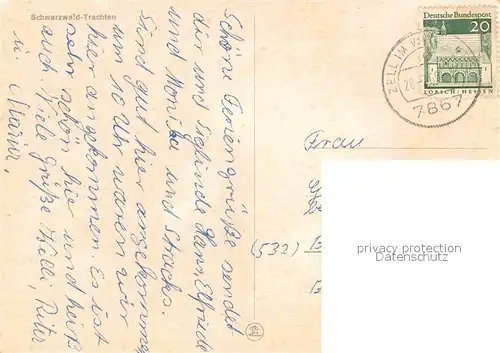 Schwarzwald-Trachten
Schöne Feriengrüße sendet
dir und Sieglinde Hans, Elfriede
und Monika und Stracks.
Sind gut hier angekommen
um 10 Uhr waren wir
hier angekommen. Es ist
sehr schön hier und heiß
auch Viele Grüße Willi, Peter
u.
Deutsche Bundespost
20
LORSCH / HESSEN
ZELL IM
7867
Frau
(532)
privacy protection
Datenschutz